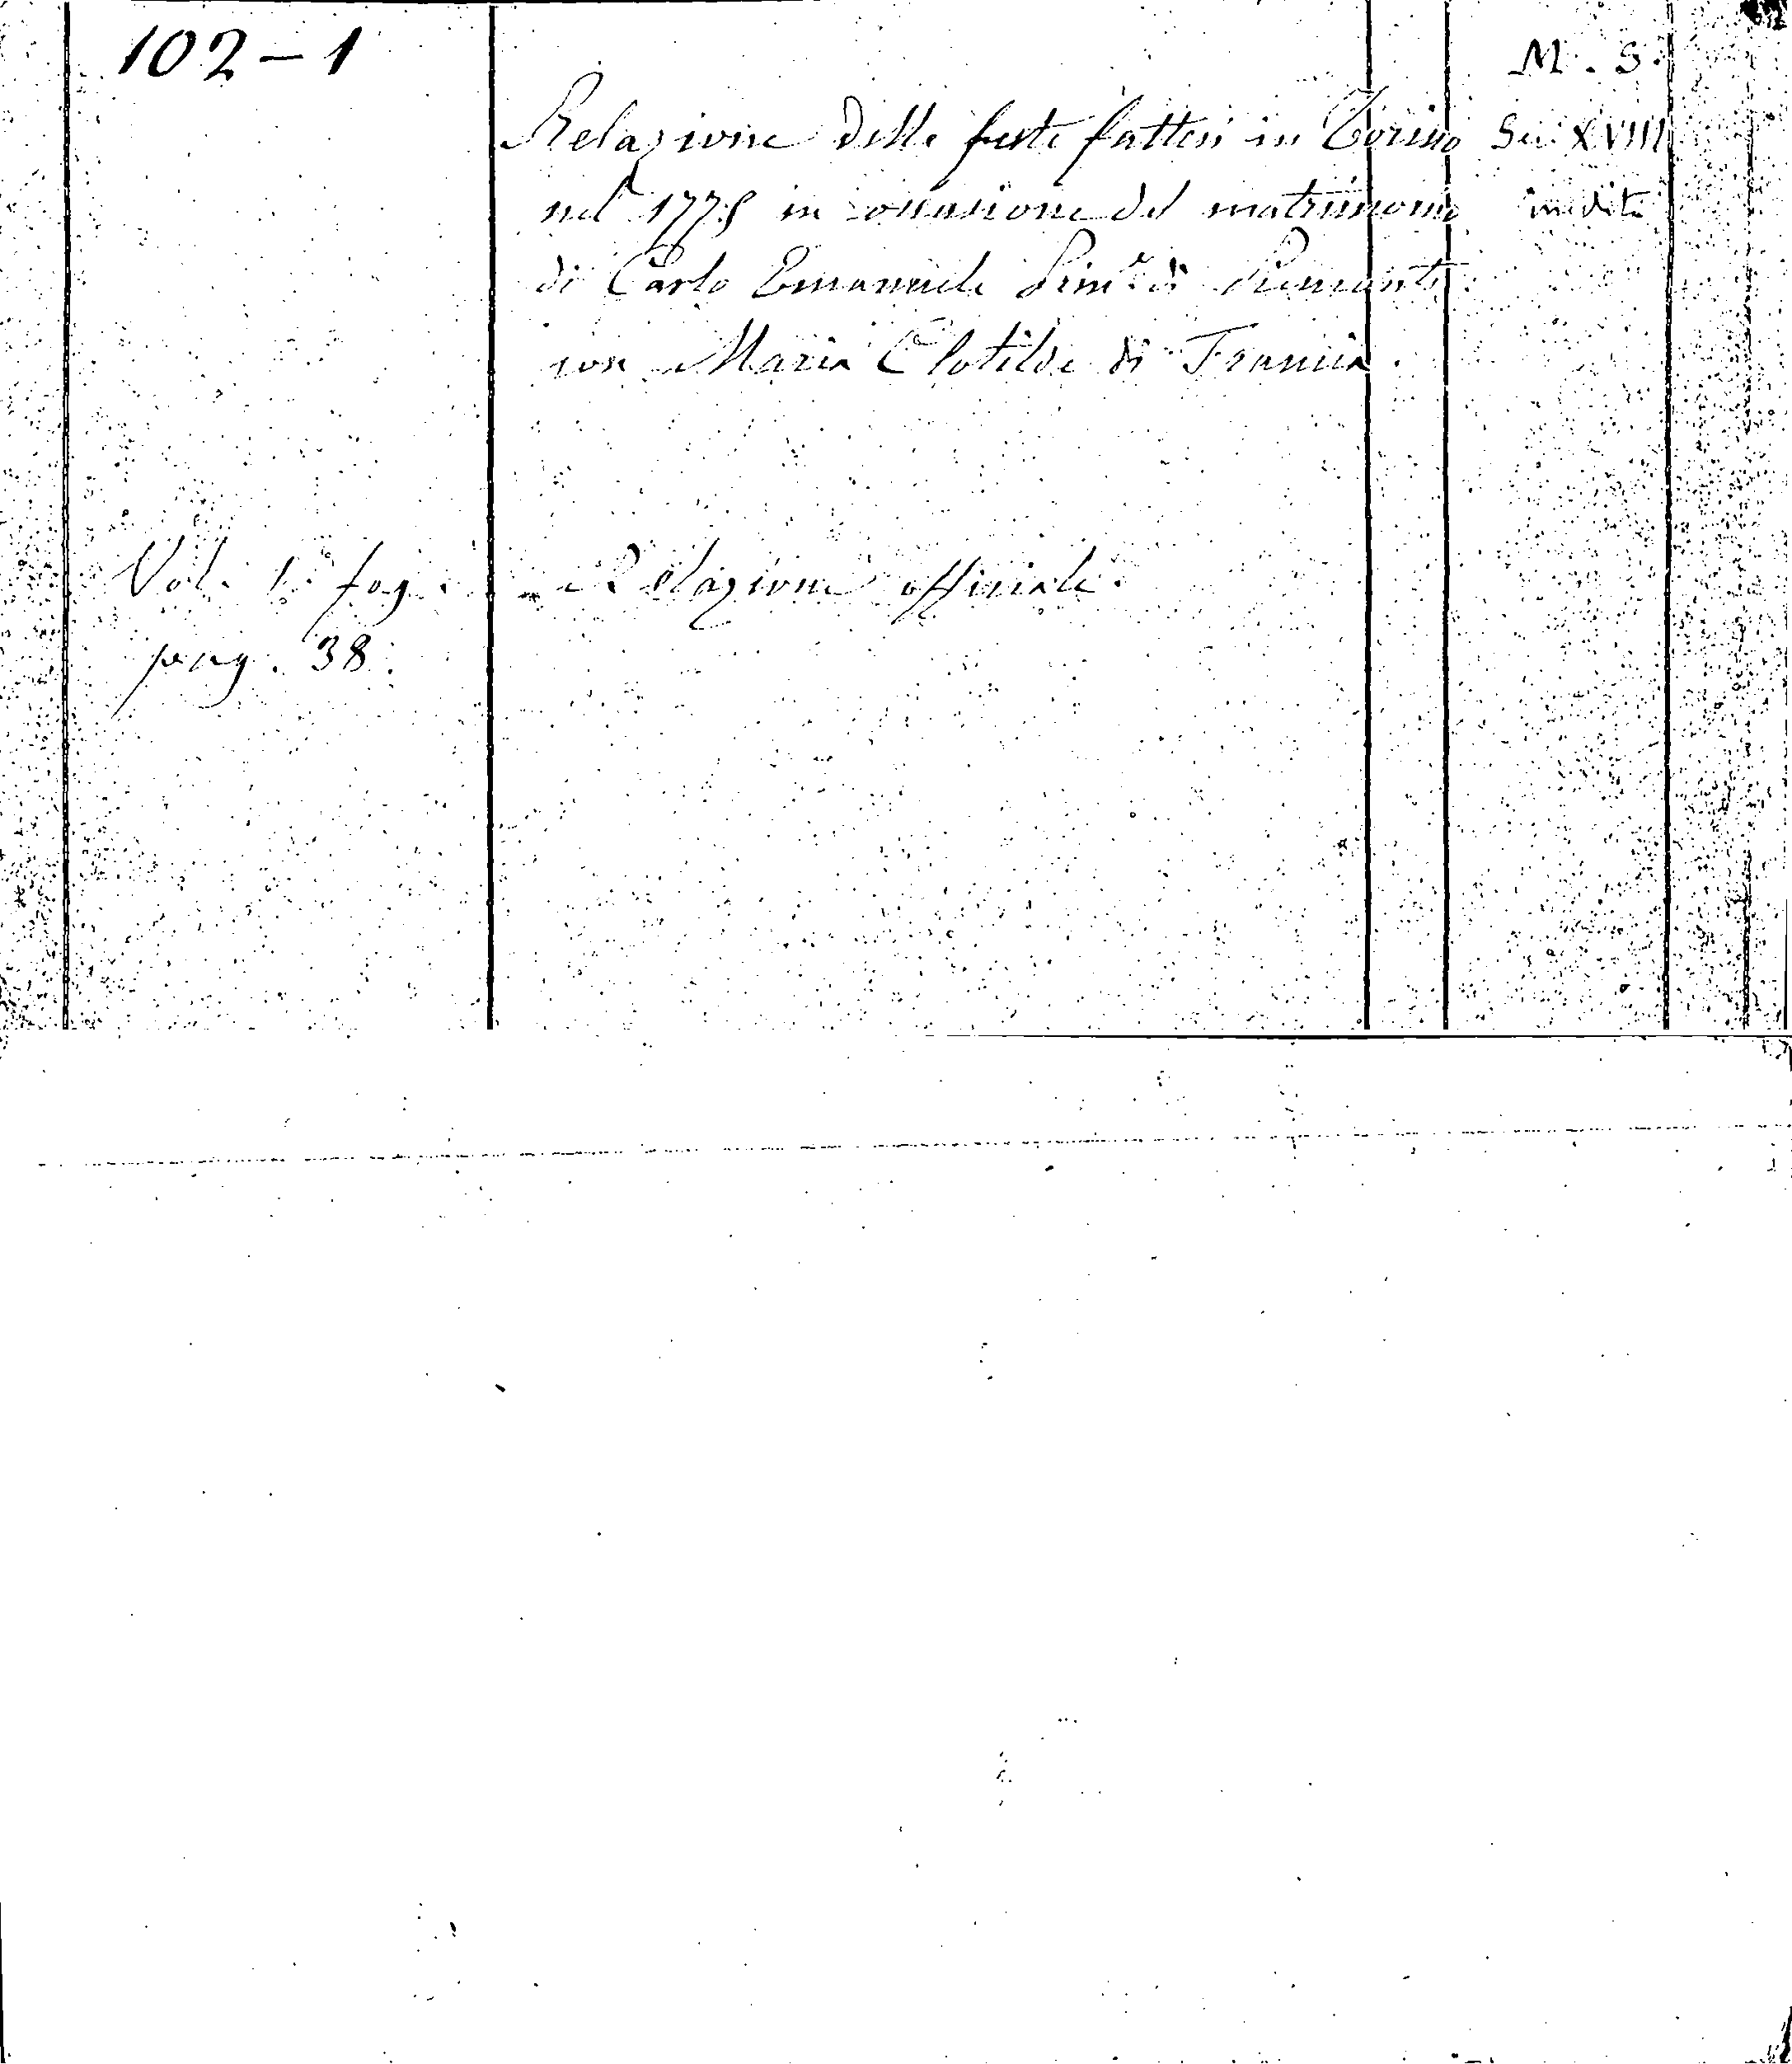 102-1
M. S.
Relazione delle feste fattesi in Torino Sec XVIII
nel 1775 in occasione del matrimonio inedita
di Carlo Emanuele di Piemonte
con Maria Clotilde di Francia.
Vol. 1. fog. Relazione officiale.
pag. 38.